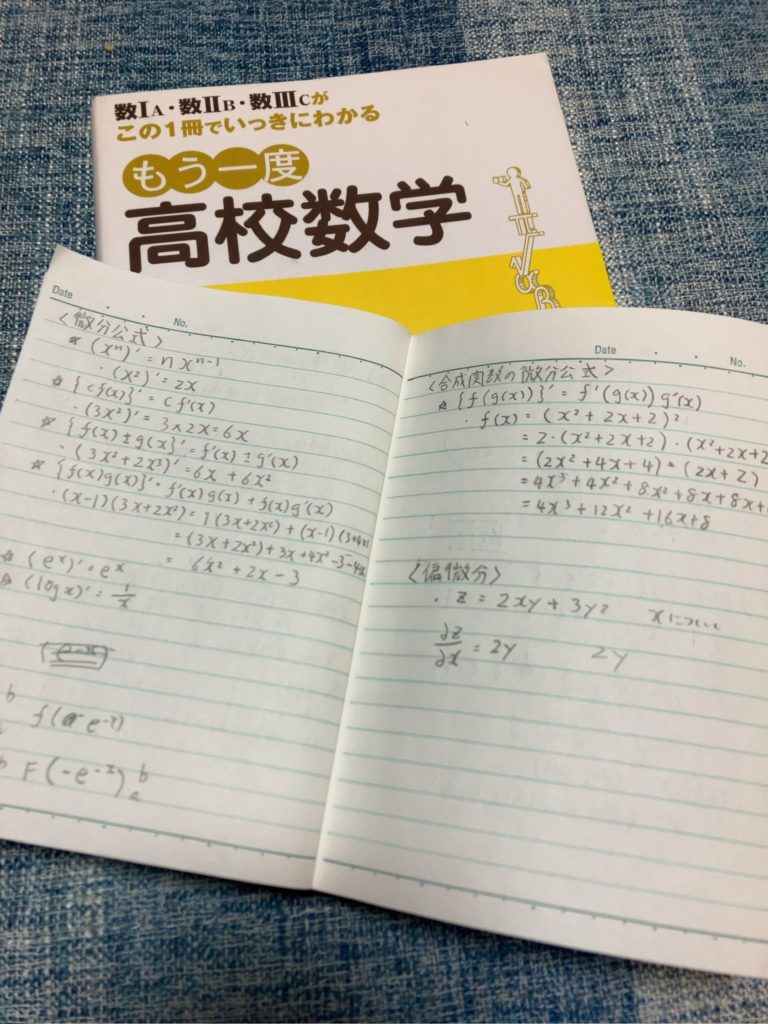 数ⅠA・数ⅡB・数ⅢCが
この1冊でいっきにわかる
もう一度
高校数学
Date
No.
〈微分公式〉
☆ (xⁿ)' = n xⁿ⁻¹
・(x²)' = 2x
☆ {cf(x)}' = cf'(x)
・(3x²)' = 3×2x = 6x
☆ {f(x) ± g(x)}' = f'(x) ± g'(x)
・(3x² + 2x³)' = 6x + 6x²
☆ {f(x)g(x)}' = f'(x)g(x) + f(x)g'(x)
・(x-1)(3x+2x²) = 1(3x+2x²) + (x-1)(3+4x)
= (3x+2x²) + 3x + 4x² - 3 - 4x
= 6x² + 2x - 3
☆ (eˣ)' = eˣ
☆ (log x)' = 1/x
b
f( e⁻ˣ)
F(-e⁻ˣ) b a
Date
No.
〈合成関数の微分公式〉
☆ {f(g(x))}' = f'(g(x)) g'(x)
・f(x) = (x² + 2x + 2)²
= 2・(x² + 2x + 2)・(x² + 2x + 2
= (2x² + 4x + 4)・(2x + 2)
= 4x³ + 4x² + 8x² + 8x + 8x +
= 4x³ + 12x² + 16x + 8
〈偏微分〉
・z = 2xy + 3y² xについて
∂z/∂x = 2y 2y